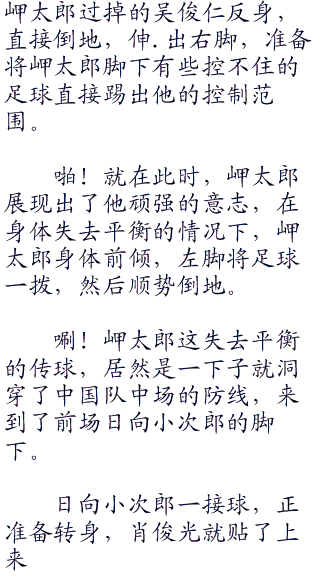 岬太郎过掉的吴俊仁反身，
直接倒地，伸.出右脚，准备
将岬太郎脚下有些控不住的
足球直接踢出他的控制范
围。
啪！就在此时，岬太郎
展现出了他顽强的意志，在
身体失去平衡的情况下，岬
太郎身体前倾，左脚将足球
一拨，然后顺势倒地。
唰！岬太郎这失去平衡
的传球，居然是一下子就洞
穿了中国队中场的防线，来
到了前场日向小次郎的脚
下。
日向小次郎一接球，正
准备转身，肖俊光就贴了上
来